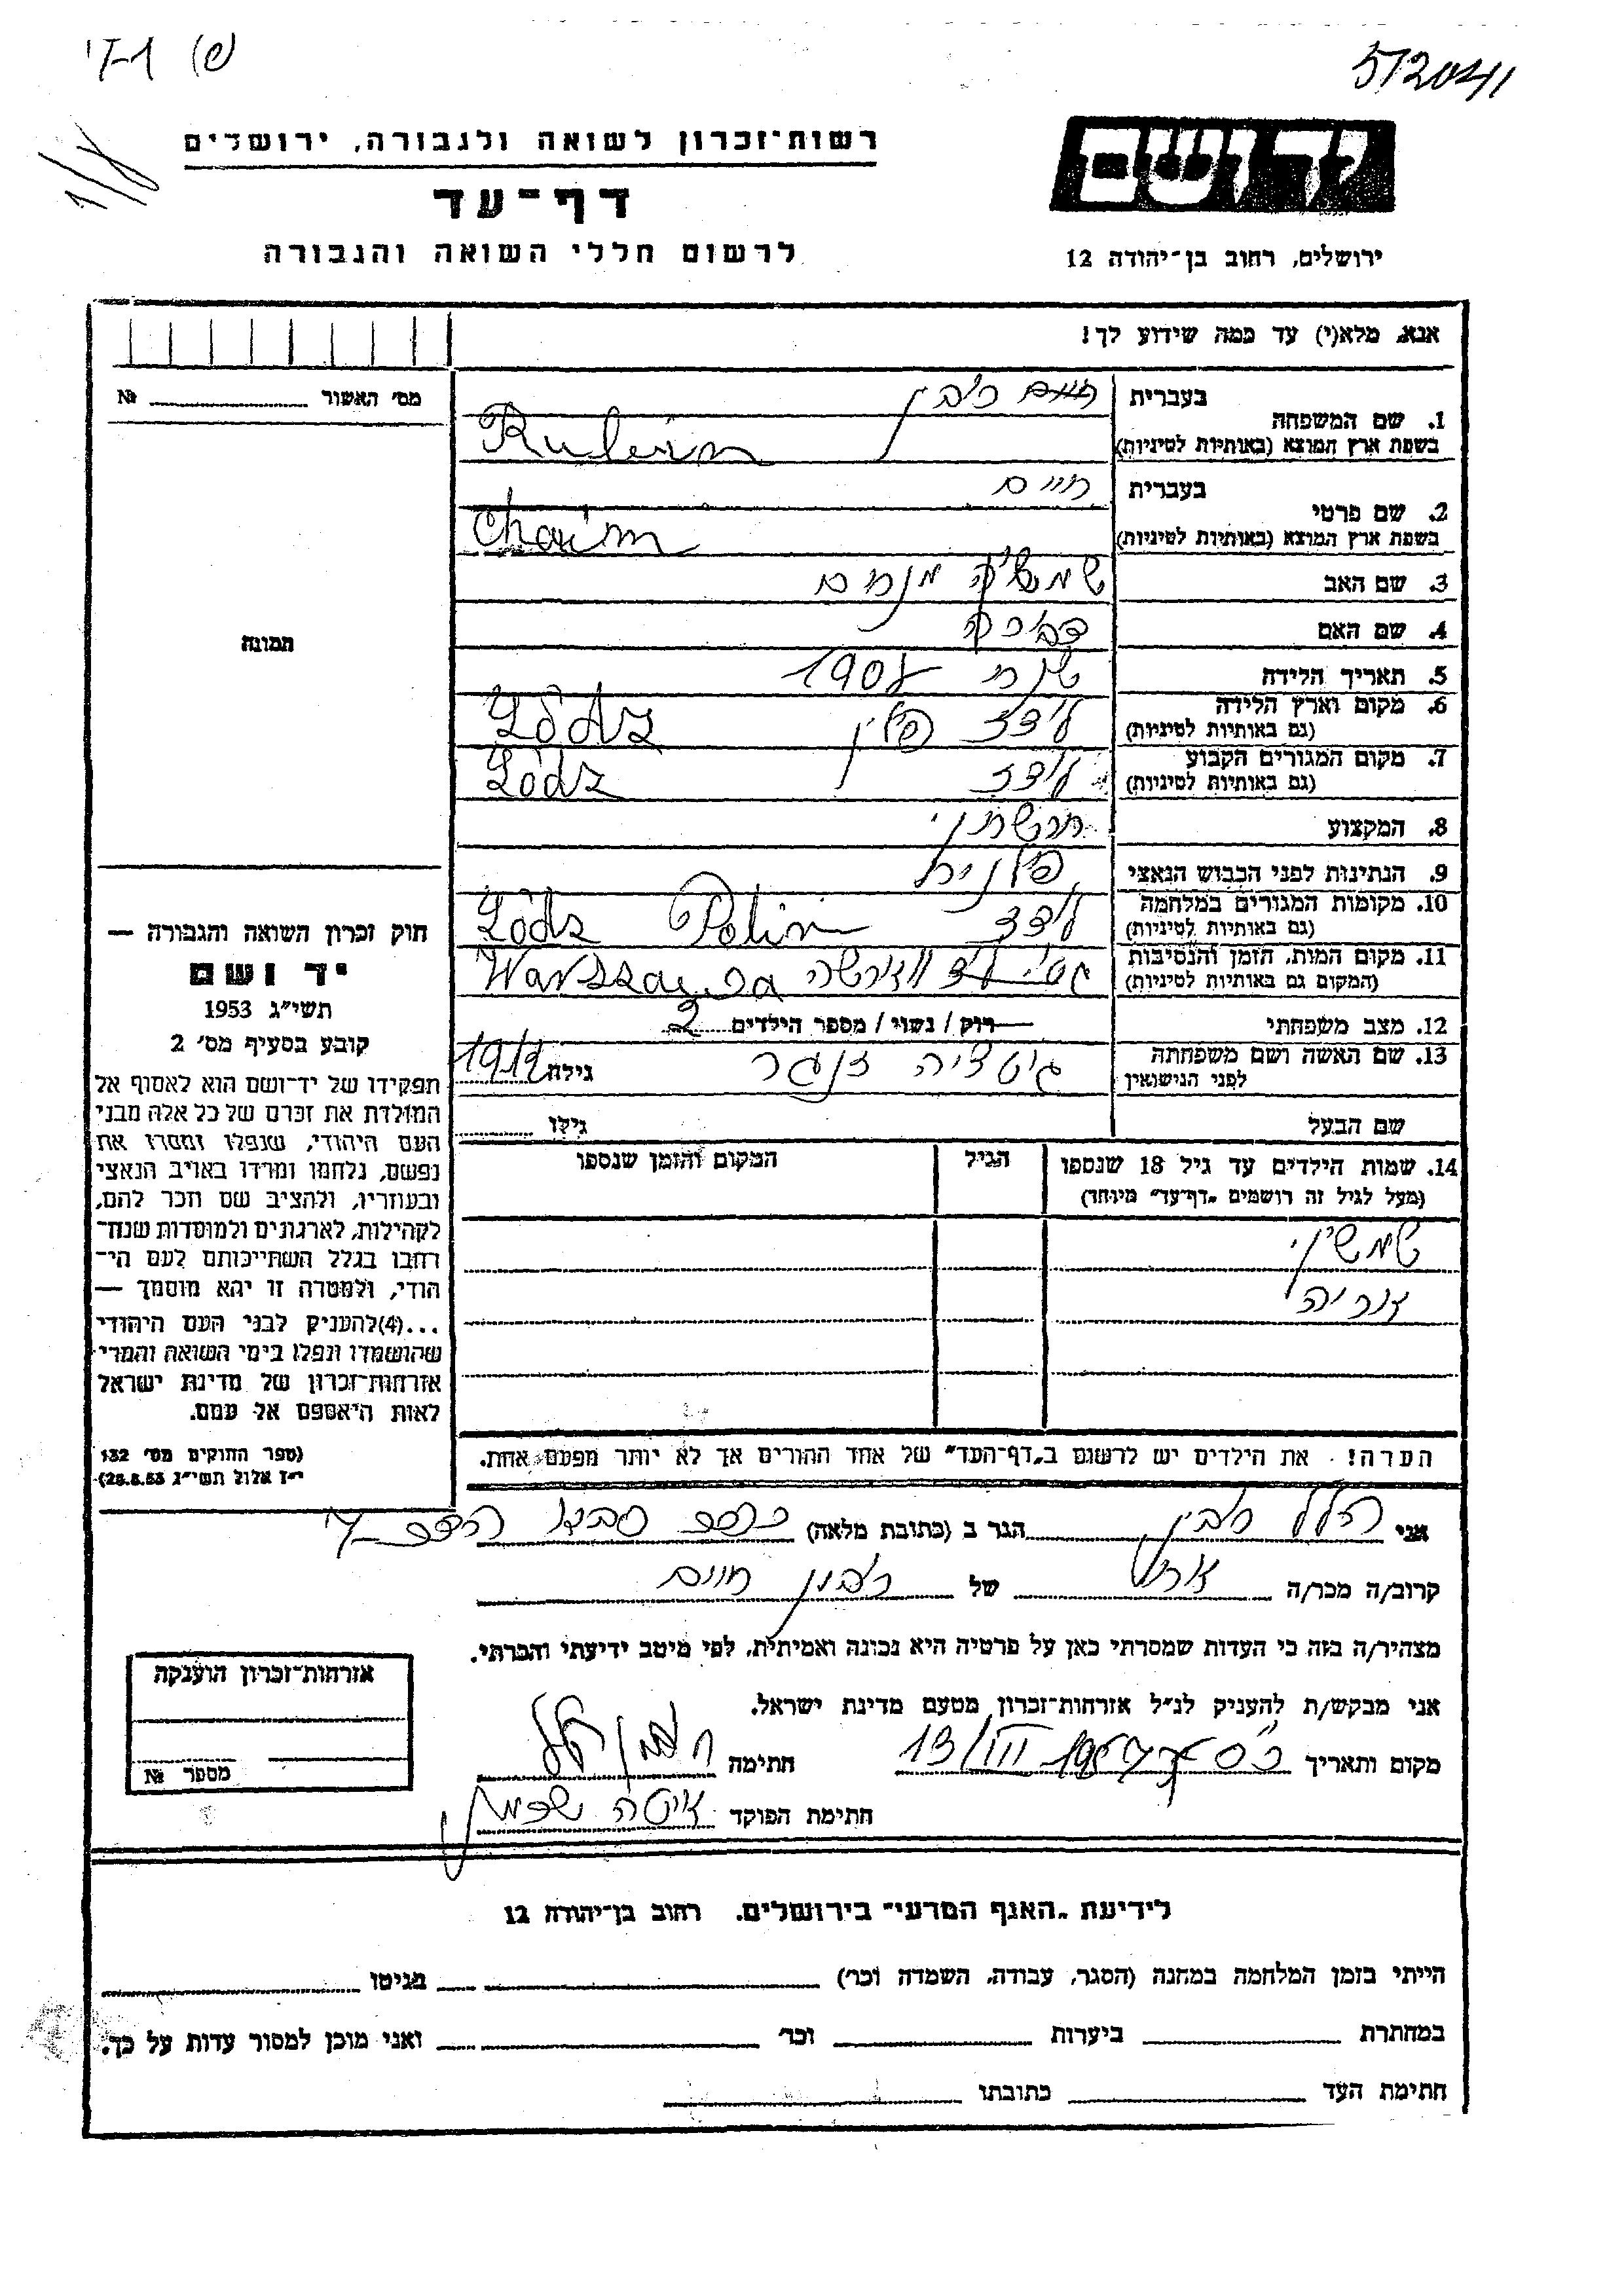 572041
רשות־זכרון לשואה ולגבורה, ירושלים
דף־עד
לרשום חללי השואה והגבורה
יד ושם
ירושלים, רחוב בן־יהודה 12
אנא, מלא(י) עד כמה שידוע לך!
מס׳ האשור № 
תמונה
1. שם המשפחה בעברית חיים רובין
בשפת ארץ המוצא (באותיות לטיניות) Rubin
2. שם פרטי בעברית חיים
בשפת ארץ המוצא (באותיות לטיניות) Chaim
3. שם האב מנחם
4. שם האם
5. תאריך הלידה שנת 1908
6. מקום וארץ הלידה לודז פולין Łódz
(גם באותיות לטיניות)
7. מקום המגורים הקבוע לודז Łódz
(גם באותיות לטיניות)
8. המקצוע חרשתן
9. הנתינות לפני הכבוש הנאצי פולנית
10. מקומות המגורים במלחמה לודז Polin Łódz
(גם באותיות לטיניות)
11. מקום המות, הזמן והנסיבות Warszawa
(המקום גם באותיות לטיניות)
12. מצב משפחתי רוק / נשוי / מספר הילדים 2
13. שם האשה ושם משפחתה לפני הנישואין גילה
שם הבעל גילו
14. שמות הילדים עד גיל 18 שנספו הגיל המקום והזמן שנספו
(מעל לגיל זה רושמים „דף־עד״ מיוחד)
הערה! את הילדים יש לרשום ב„דף־העד״ של אחד ההורים אך לא יותר מפעם אחת.
חוק זכרון השואה והגבורה —
יד ושם
תשי״ג 1953
קובע בסעיף מס׳ 2
תפקידו של יד־ושם הוא לאסוף אל
המולדת את זכרם של כל אלה מבני
העם היהודי, שנפלו ומסרו את
נפשם, נלחמו ומרדו באויב הנאצי
ובעוזריו, ולהציב שם וזכר להם,
לקהילות, לארגונים ולמוסדות שנח־
רבו בגלל השתייכותם לעם הי־
הודי, ולמטרה זו יהא מוסמך —
...(4)להעניק לבני העם היהודי
שהושמדו ונפלו בימי השואה והמרי
אזרחות־זכרון של מדינת ישראל
לאות היאספם אל עמם.
(ספר החוקים מס׳ 132
י״ז אלול תשי״ג 28.8.53)
אני הלל רובין הגר ב (כתובת מלאה)
קרוב/ה מכר/ה של רובין חיים
מצהיר/ה בזה כי העדות שמסרתי כאן על פרטיה היא נכונה ואמיתית, לפי מיטב ידיעתי והכרתי.
אני מבקש/ת להעניק לנ״ל אזרחות־זכרון מטעם מדינת ישראל.
מקום ותאריך 13/III 1957 חתימה רובין הלל
חתימת הפוקד
אזרחות־זכרון הוענקה
מספר №
לידיעת „האגף המדעי״ בירושלים. רחוב בן־יהודה 12
הייתי בזמן המלחמה במחנה (הסגר, עבודה, השמדה וכר׳) בגיטו
במחתרת ביערות וכר׳ ואני מוכן למסור עדות על כך.
חתימת העד כתובתו